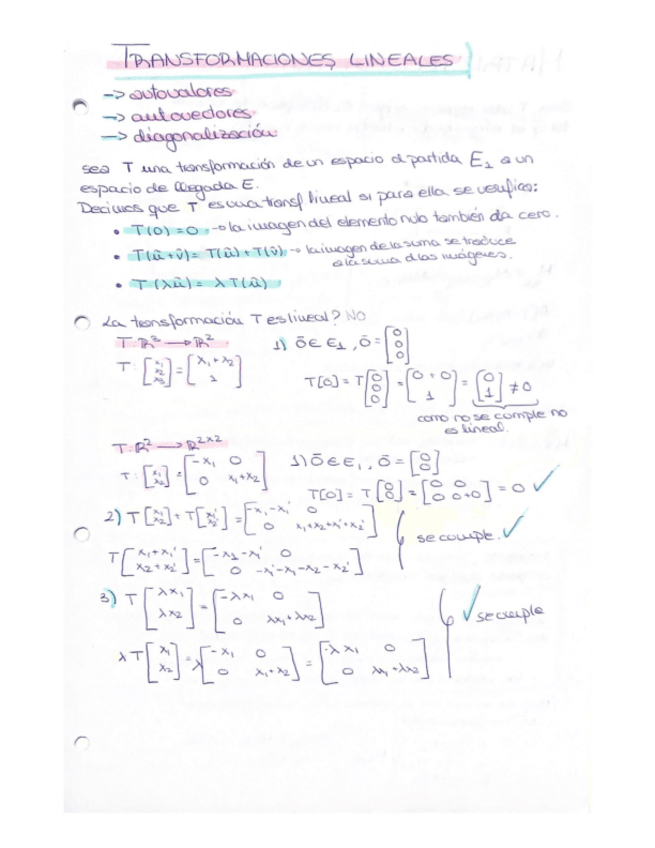 TRANSFORMACIONES LINEALES
-> autovalores
-> autovectores
-> diagonalización
sea T una transformación de un espacio d partida E₁ a un
espacio de llegada E.
Decimos que T es una transf lineal si para ella se verifica:
• T(0) = 0 -> la imagen del elemento nulo también da cero.
• T(ū + v̄) = T(ū) + T(v̄) -> la imagen de la suma se traduce
a la suma d las imágenes.
• T(λū) = λT(ū)
La transformación T es lineal? NO
T: R³ → R² 1) ō ∈ E₁, ō = [0 0 0]
T: [x₁ x₂ x₃] = [x₁ + x₂ 1] T[0] = T[0 0 0] = [0 + 0 1] = [0 1] ≠ 0
como no se cumple no
es lineal.
T: R² → R²ˣ²
T: [x₁ x₂] = [-x₁ 0 0 x₁+x₂] 1) ō ∈ E₁, ō = [0 0]
T[0] = T[0 0] = [0 0 0 0+0] = 0 ✓
2) T[x₁ x₂] + T[x₁' x₂'] = [-x₁-x₁' 0 0 x₁+x₂+x₁'+x₂'] se cumple. ✓
T[x₁+x₁' x₂+x₂'] = [-x₁-x₁' 0 0 -x₁'-x₁-x₂-x₂']
3) T[λx₁ λx₂] = [-λx₁ 0 0 λx₁+λx₂] ✓ se cumple
λT[x₁ x₂] = λ[-x₁ 0 0 x₁+x₂] = [-λx₁ 0 0 λx₁+λx₂]